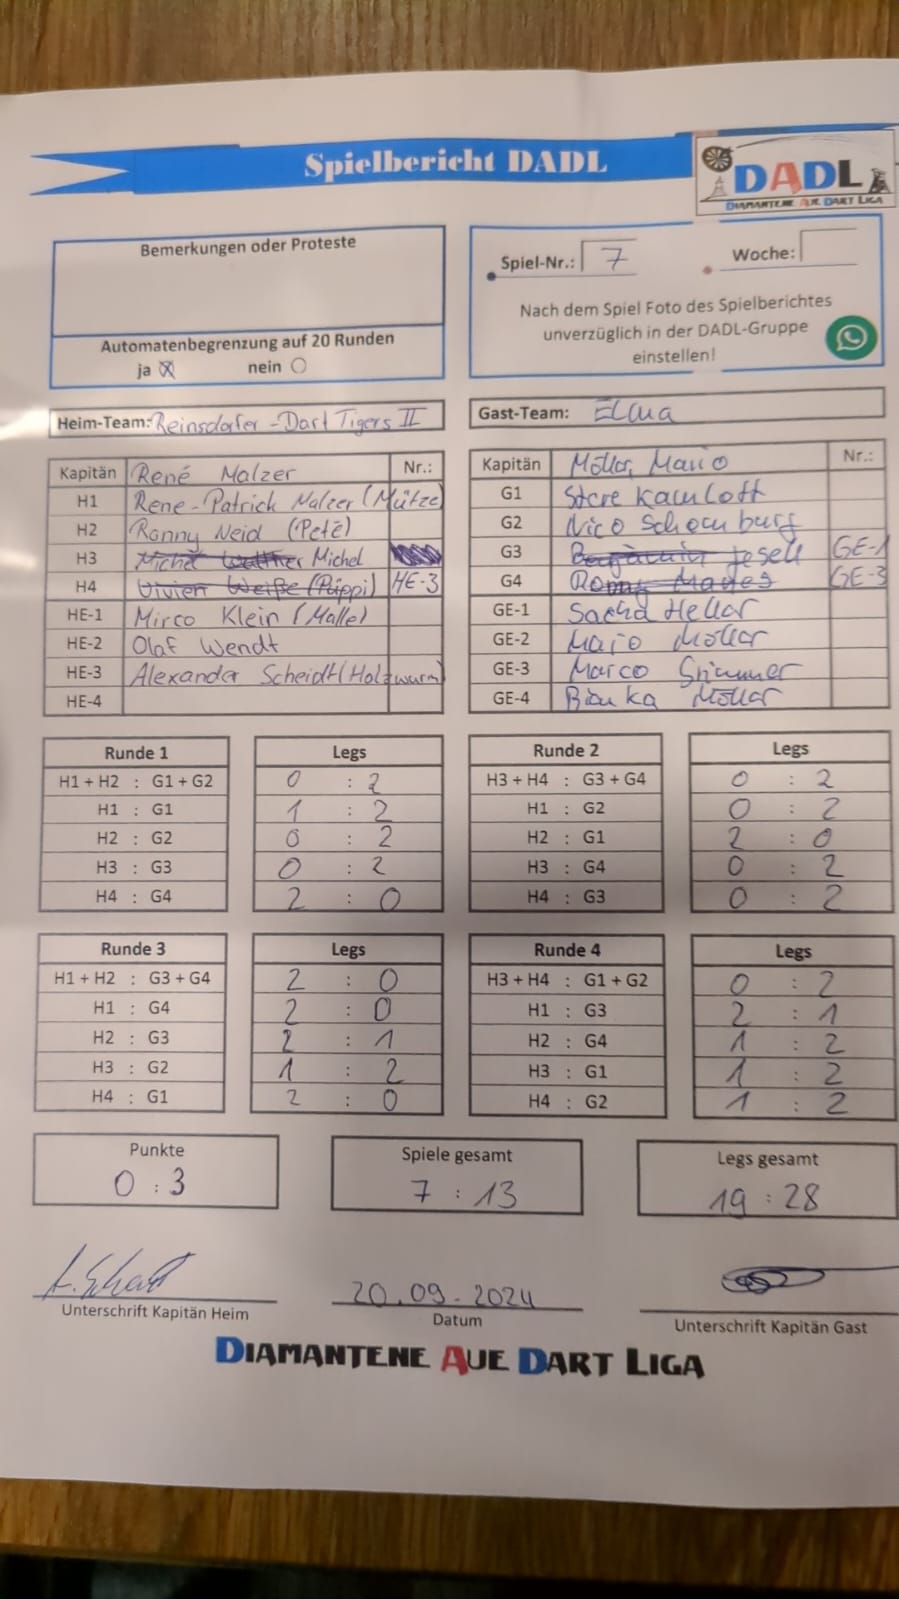 Spielbericht DADL
DADL
DIAMANTENE AUE DART LIGA
Bemerkungen oder Proteste
Automatenbegrenzung auf 20 Runden
ja ☒ nein ○
Spiel-Nr.: 7 Woche:
Nach dem Spiel Foto des Spielberichtes
unverzüglich in der DADL-Gruppe
einstellen!
Heim-Team: Reinsdorfer-Dart Tigers II
Kapitän René Malzer Nr.:
H1 Rene-Patrick Malzer (Mütze)
H2 Ronny Neid (Pete)
H3 Michel Walther Michel
H4 Vivien Weiße (Püppi) HE-3
HE-1 Mirco Klein (Malle)
HE-2 Olaf Wendt
HE-3 Alexander Scheidt (Holzwurm)
HE-4
Gast-Team: Elma
Kapitän Möller, Mario Nr.:
G1
G2 Nico Schomburg
G3 GE-1
G4 GE-3
GE-1 Sacha Heller
GE-2 Mario Möller
GE-3 Marco
GE-4 Bianka Möller
Runde 1 Legs
H1 + H2 : G1 + G2 0 : 2
H1 : G1 1 : 2
H2 : G2 0 : 2
H3 : G3 0 : 2
H4 : G4 2 : 0
Runde 2 Legs
H3 + H4 : G3 + G4 0 : 2
H1 : G2 0 : 2
H2 : G1 2 : 0
H3 : G4 0 : 2
H4 : G3 0 : 2
Runde 3 Legs
H1 + H2 : G3 + G4 2 : 0
H1 : G4 2 : 0
H2 : G3 2 : 1
H3 : G2 1 : 2
H4 : G1 2 : 0
Runde 4 Legs
H3 + H4 : G1 + G2 0 : 2
H1 : G3 2 : 1
H2 : G4 1 : 2
H3 : G1 1 : 2
H4 : G2 1 : 2
Punkte
0 : 3
Spiele gesamt
7 : 13
Legs gesamt
19 : 28
Unterschrift Kapitän Heim
20.09.2024
Datum
Unterschrift Kapitän Gast
DIAMANTENE AUE DART LIGA